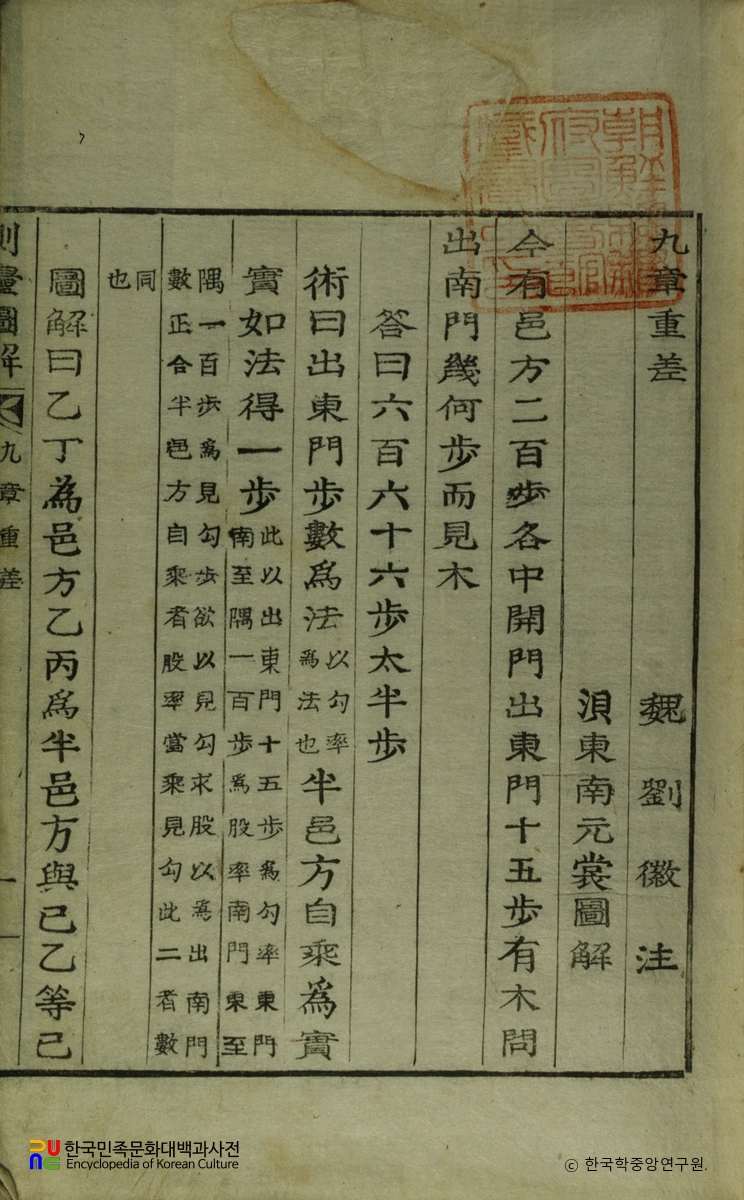 九章重差
魏劉徽注
浿東南元裳圖解
今有邑方二百步各中開門出東門十五步有木問
出南門幾何步而見木
答曰六百六十六步太半步
術曰出東門步數爲法
以勾率
爲法也
半邑方自乘爲實
實如法得一步
此以出東門十五步爲勾率東門
南至隅一百步爲股率南門東至
隅一百步爲見勾步欲以見勾求股以爲出南門
數正合半邑方自乘者股率當乘見勾此二者數
同
也
圖解曰乙丁為邑方乙丙爲半邑方與己乙等己
測量圖解
九章重差
一
한국민족문화대백과사전
Encyclopedia of Korean Culture
© 한국학중앙연구원.